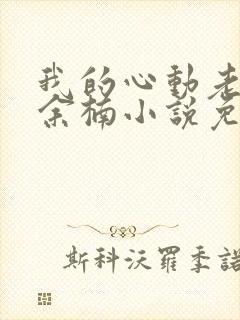 我的心動老
余楠小說免
斯科沃羅季諾